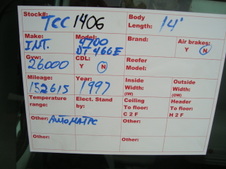 Stock#: TCC 1406 Body Length: 14'
Make: INT. Model: 4700 DT 466E Brand: Air brakes: Y N
Gvw: 26000 CDL: Y N Reefer Model:
Mileage: 152615 Year: 1997 Inside Width: (IW) Outside Width: (OW)
Temperature range: Elect. Stand by: Ceiling To floor: C 2 F Header To floor: H 2 F
Other: AUTOMATIC Other: Other: Other:
Other: Other: